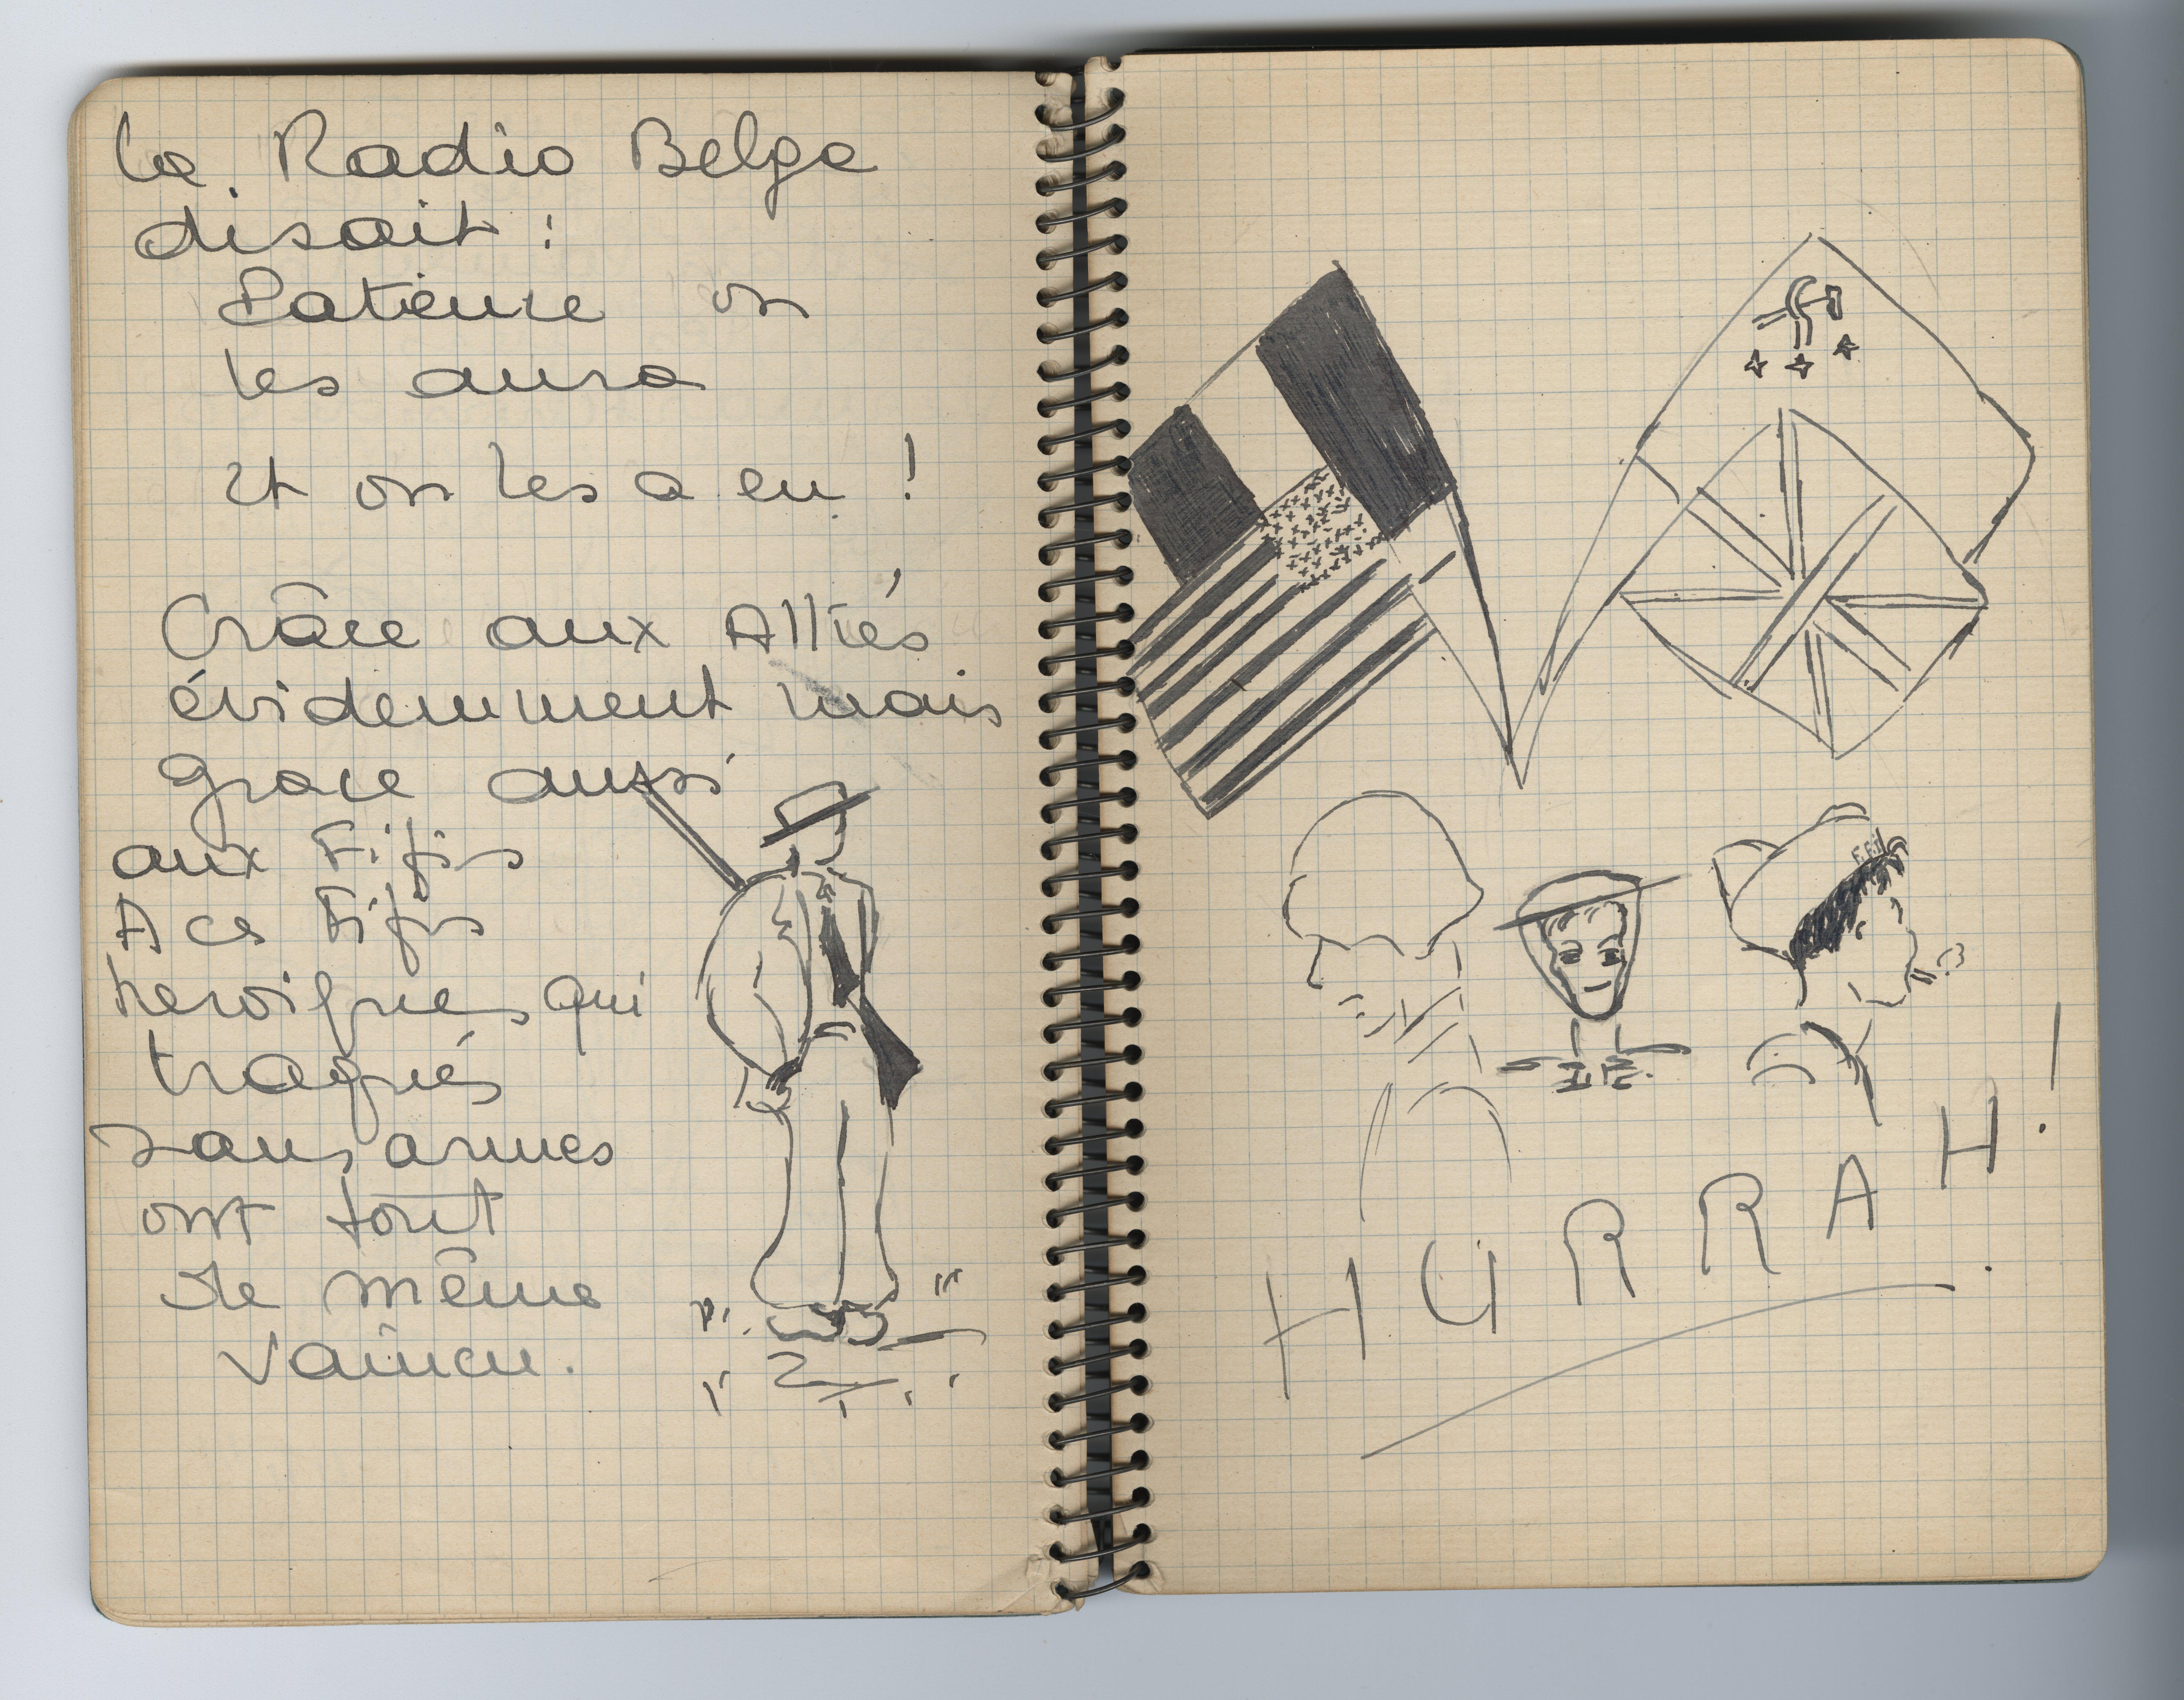 La Radio Belge
disait :
Patience on
les aura
Et on les a eu !
Grâce aux Alliés
évidemment mais
grace aussi
aux Fifis
A ces Fifis
heroiques qui
traqués
sans armes
ont tout
de même
vaincu.
F.F.I
HURRAH !